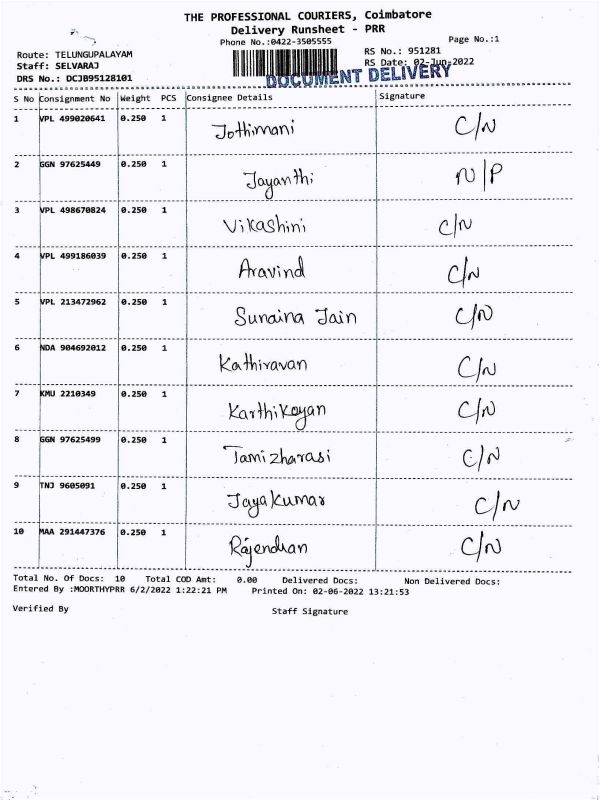 THE PROFESSIONAL COURIERS, Coimbatore
Delivery Runsheet - PRR
Phone No.:0422-3505555 Page No.:1
Route: TELUNGUPALAYAM RS No.: 951281
Staff: SELVARAJ RS Date: 02-Jun-2022
DRS No.: DCJB95128101 DOCUMENT DELIVERY
S No Consignment No Weight PCS Consignee Details Signature
1 VPL 499020641 0.250 1 Jothimani C/N
2 GGN 97625449 0.250 1 Jayanthi N/P
3 VPL 498670824 0.250 1 Vikashini C/N
4 VPL 499186039 0.250 1 Aravind C/N
5 VPL 213472962 0.250 1 Sunaina Jain C/N
6 NDA 904692012 0.250 1 Kathiravan C/N
7 KMU 2210349 0.250 1 Karthikeyan C/N
8 GGN 97625499 0.250 1 Tamizharasi C/N
9 TNJ 9605091 0.250 1 Jayakumar C/N
10 MAA 291447376 0.250 1 Rajendran C/N
Total No. Of Docs: 10 Total COD Amt: 0.00 Delivered Docs: Non Delivered Docs:
Entered By :MOORTHYPRR 6/2/2022 1:22:21 PM Printed On: 02-06-2022 13:21:53
Verified By Staff Signature